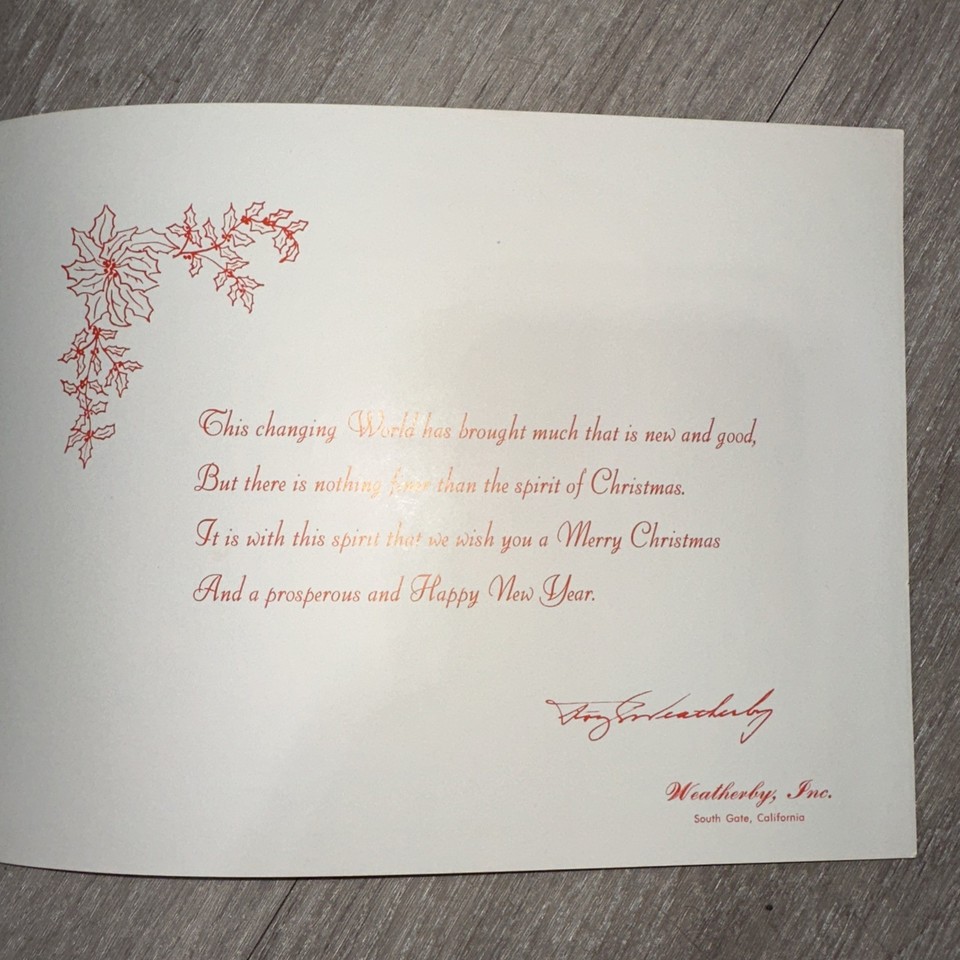 This changing World has brought much that is new and good,
But there is nothing finer than the spirit of Christmas.
It is with this spirit that we wish you a Merry Christmas
And a prosperous and Happy New Year.
Roy E Weatherby
Weatherby, Inc.
South Gate, California